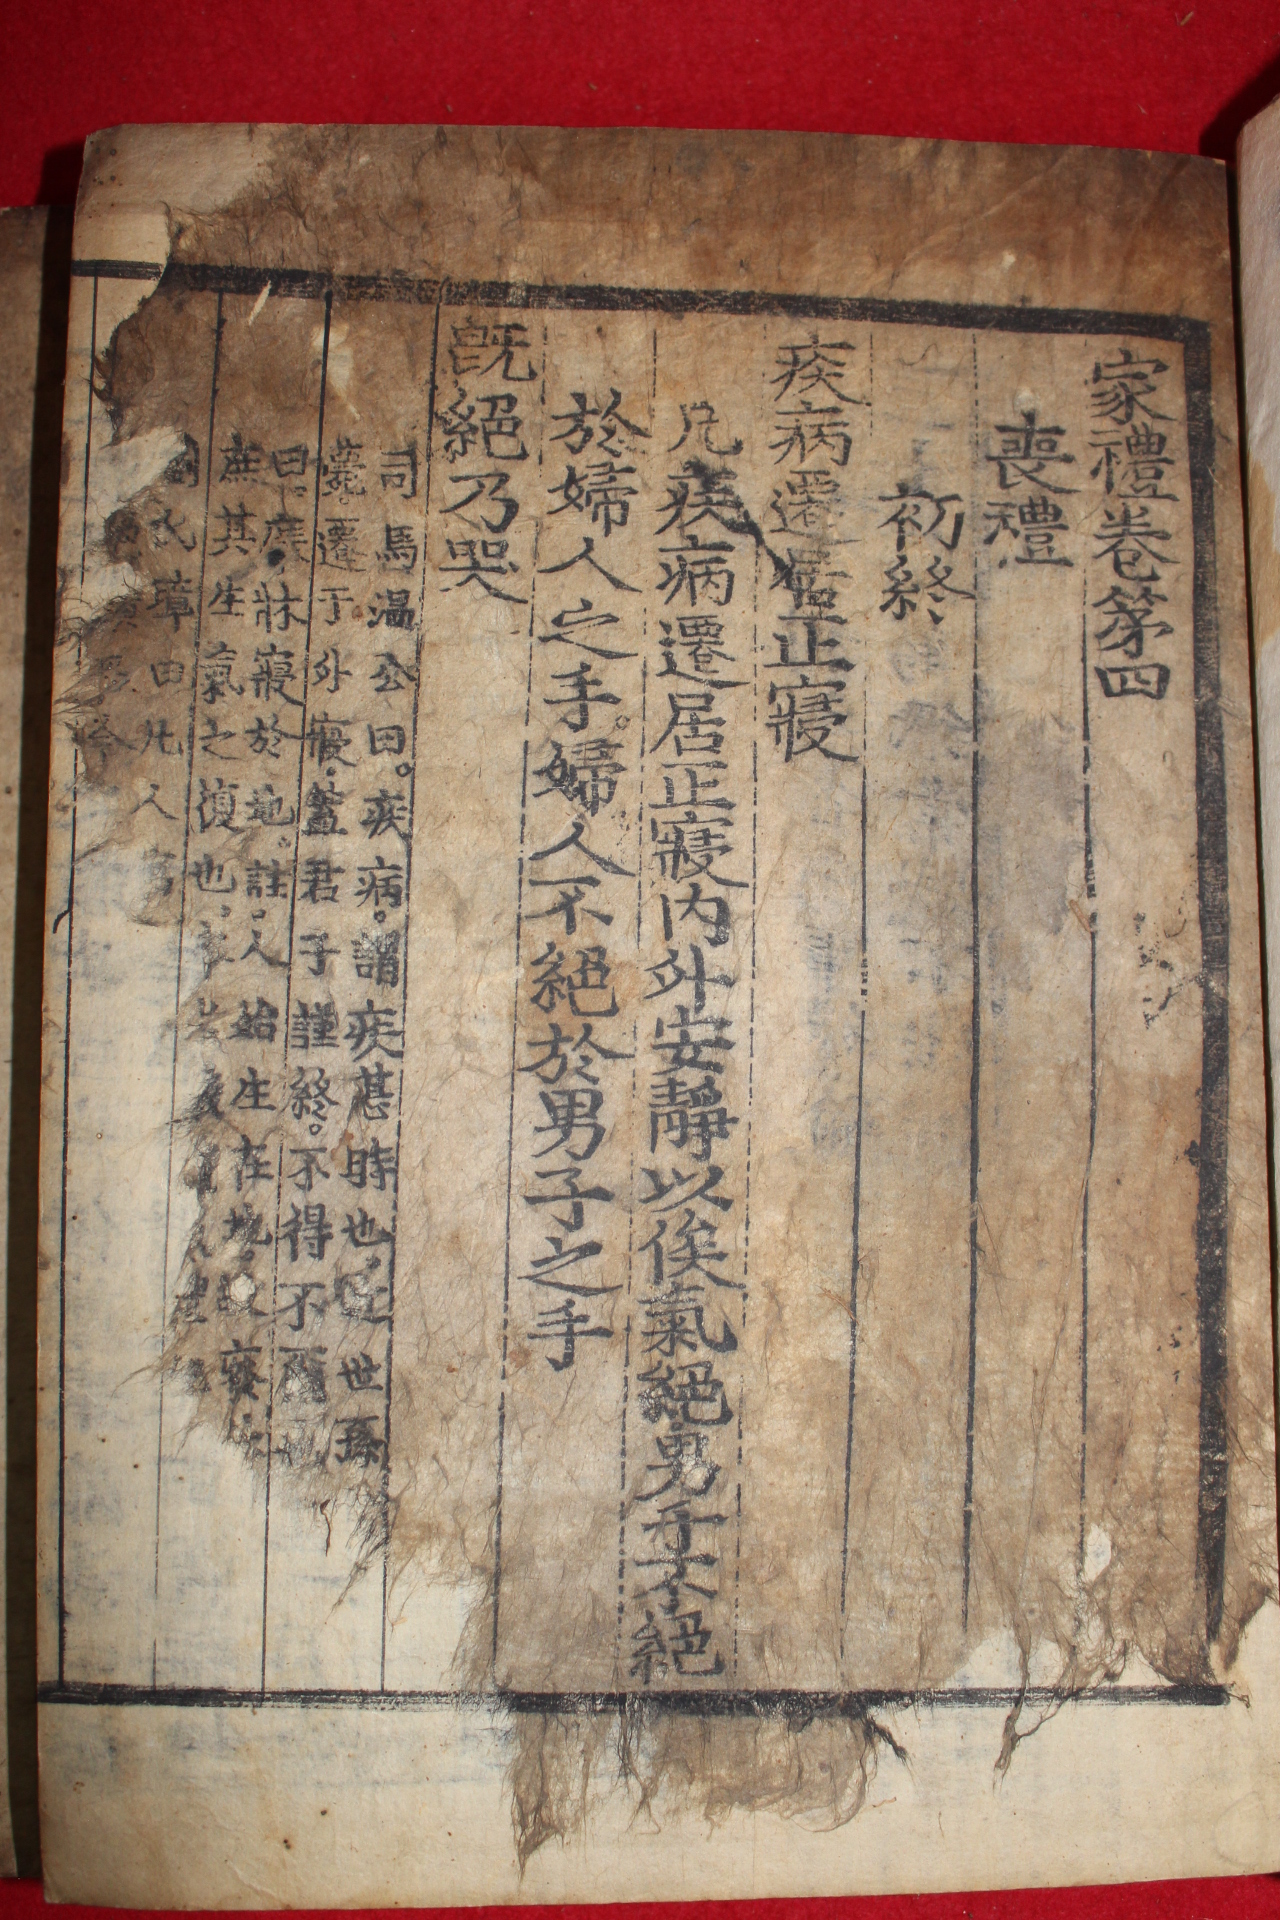 家禮卷第四
喪禮
初終
疾病遷居正寢
凡疾病遷居正寢內外安靜以俟氣絕男子不絕
於婦人之手。婦人不絕於男子之手
旣絕乃哭
司馬溫公曰。疾病。謂疾甚時也,近世孫
薨。遷于外寢。蓋君子謹終。不得不爾也
曰。廢牀寢於地。註,人始生在地。故廢
庶其生氣之復也,
劉氏璋曰凡人